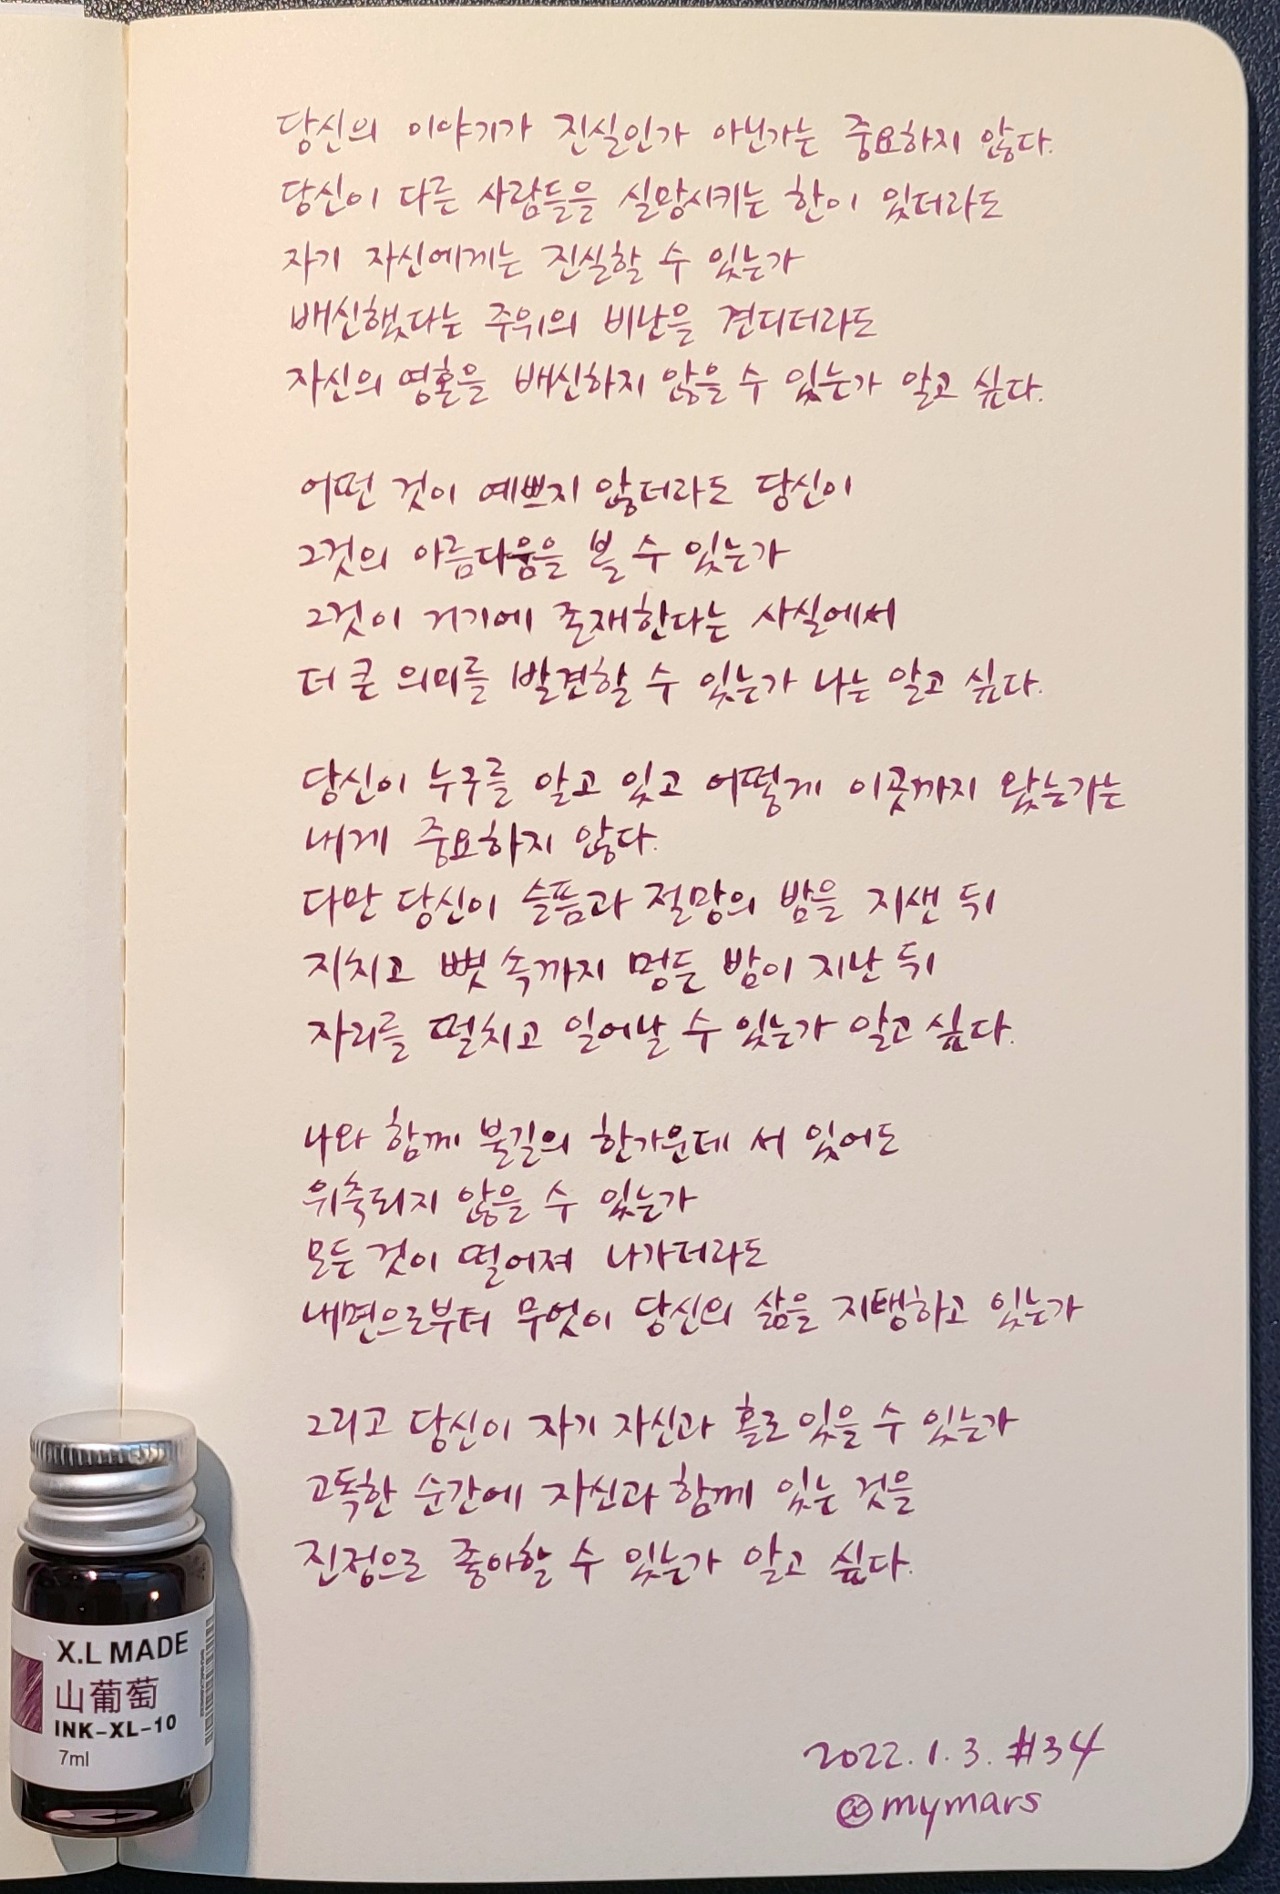 당신의 이야기가 진실인가 아닌가는 중요하지 않다.
당신이 다른 사람들을 실망시키는 한이 있더라도
자기 자신에게는 진실할 수 있는가
배신했다는 주위의 비난을 견디더라도
자신의 영혼을 배신하지 않을 수 있는가 알고 싶다.
어떤 것이 예쁘지 않더라도 당신이
그것의 아름다움을 볼 수 있는가
그것이 거기에 존재한다는 사실에서
더 큰 의미를 발견할 수 있는가 나는 알고 싶다.
당신이 누구를 알고 있고 어떻게 이곳까지 왔는가는
내게 중요하지 않다.
다만 당신이 슬픔과 절망의 밤을 지샌 뒤
지치고 뼛속까지 멍든 밤이 지난 뒤
자리를 떨치고 일어날 수 있는가 알고 싶다.
나와 함께 불길의 한가운데 서 있어도
위축되지 않을 수 있는가
모든 것이 떨어져 나가더라도
내면으로부터 무엇이 당신의 삶을 지탱하고 있는가
그리고 당신이 자기 자신과 홀로 있을 수 있는가
고독한 순간에 자신과 함께 있는 것을
진정으로 좋아할 수 있는가 알고 싶다.
X.L MADE
山葡萄
INK-XL-10
7ml
2022.1.3. #34
@mymars